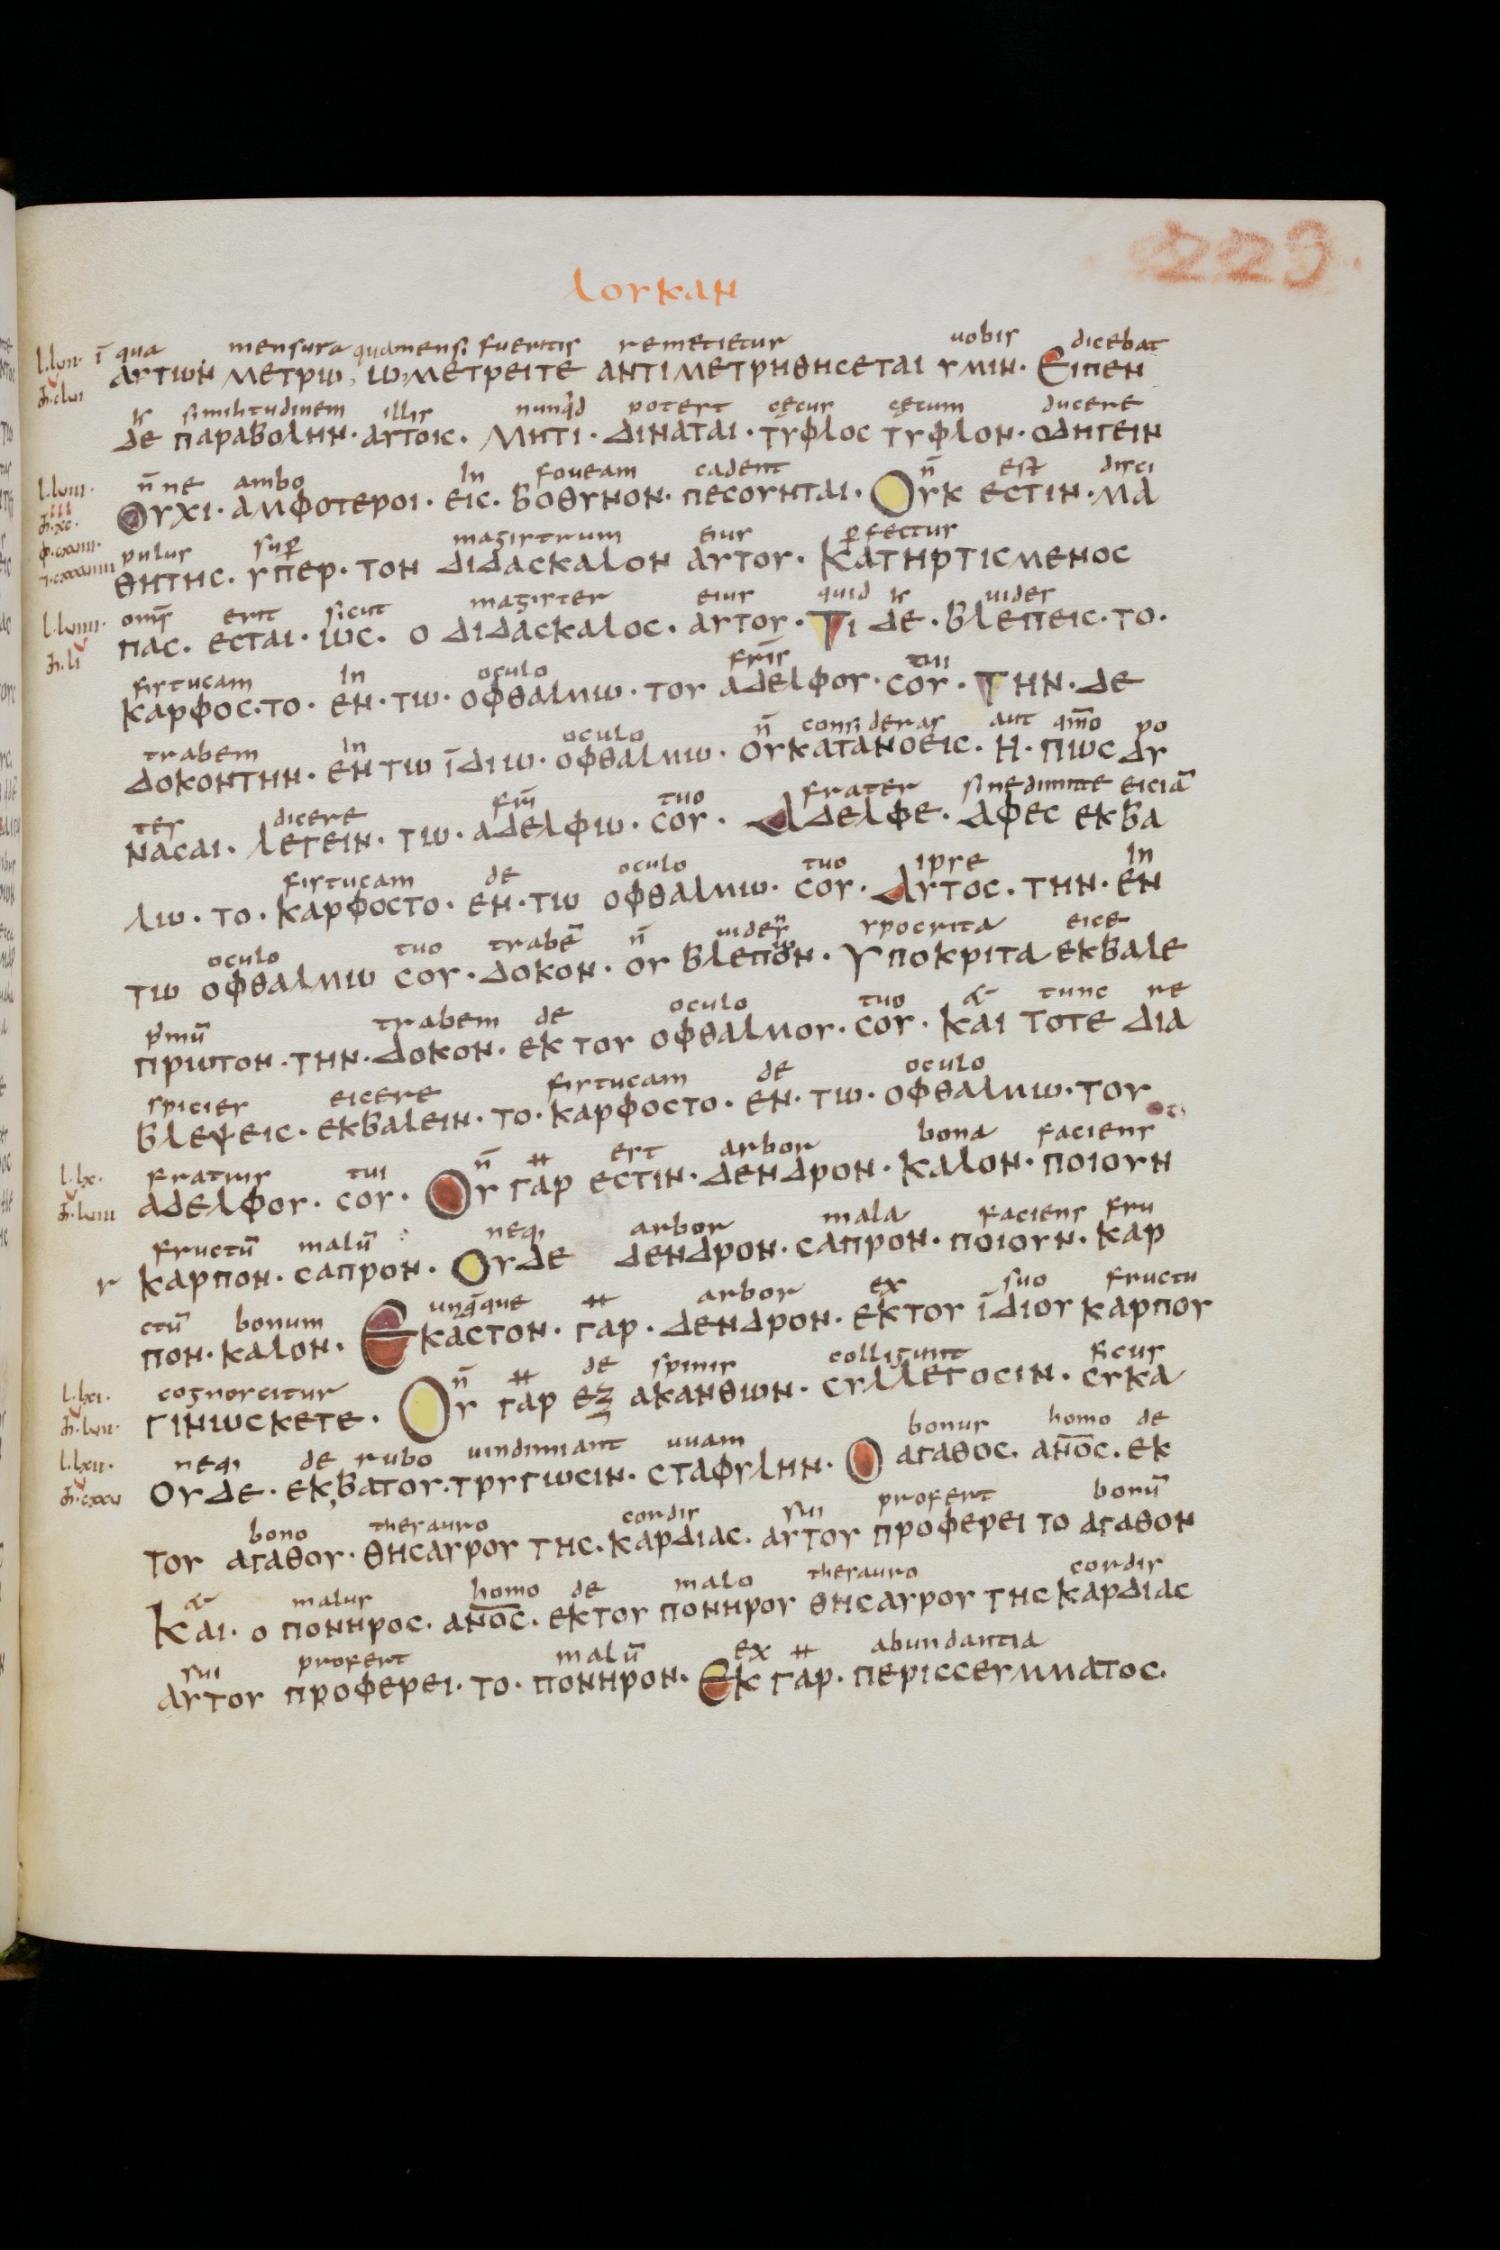 223.
λουκαν
l.lvii. ī qua mensura quamensi fueritis remetietur uobis dicebat
αυτων μετρω, ιω, μετρειτε αντιμετρηθησεται υμιν· Ειπεν
similitudinem illis nunqd potest cęcus cęcum ducere
δε παραβολην· αυτοις. Μητι· διναται· τυφλος τυφλον· οδηγειν
n̄ne ambo In foueam cadent n̄ est disci
Ουχι· αμφοτεροι· εις· βοθυνον· πεσουνται· Ουκ εστιν· μα
pulus sup magistrum perfectus
θητης. υπερ· τον διδασκαλον αυτου· κατηρτισμενος
oms̄ erit sicut magister eius quid uides
πας. εσται· ιως. ο διδασκαλος. αυτου· Τι δε· βλεπεις· το·
fistucam In oculo fr̄is tui
καρφος· το· εν· τω· οφθαλμω· του αδελφου· σου· Την· δε
trabem In oculo n̄ consideras aut qm̄o po
δοκοντην· εν τω ϊδιω· οφθαλμω· ουκατανοεις. η· πως δυ
ter dicere tuo frater sinedimitte eiciā
νασαι· λεγειν· τω· αδελφιω· σου· Αδελφε· αφες εκβα
fistucam de oculo tuo ipse In
λιω· το· καρφοστο· εν· τω οφθαλμιω· σου· Αυτος. την· εν
oculo tuo trabē n̄ ypocrita eice
τιω οφθαλμιω σου· δοκον· ου βλεπον· Υποκριτα εκβαλε
trabem de oculo tuo tunc re
πρωτον· την· δοκον· εκ του οφθαλμου· σου· και τοτε δια
spicies eicere fistucam de oculo
βλεψεις· εκβαλειν· το· καρφοστο· εν· τω· οφθαλμιω· του
l.lx. fratris tui n̄ est arbor bona faciens
αδελφου· σου· Ου γαρ εστιν· δενδρον· καλον· ποιουν
fructū malū neqi arbor mala faciens fru
καρπον· σαπρον· Ουδε δενδρον· σαπρον· ποιουν· καρ
ctū bonum unaqque arbor ex suo fructu
πον· καλον· Εκαστον· γαρ· δενδρον· εκτου ϊδιου καρπου
l.lxi. cognoscitur n̄ de spinis colligunt ficus
γινωσκετε· Ου γαρ εξ ακανθων· συλλεγοσιν· συκα
l.lxii. neqi de rubo uindimiant uuam bonus homo de
Ουδε· εκ,βατου· τρυγωσιν· σταφυλην· Ο αγαθος. ανο̅ς. εκ
bono thesauro cordis sui profert bonū
του αγαθου· θησαυρου της· καρδιας. αυτου προφερει το αγαθον
malus homo de malo thesauro cordis
Και· ο πονηρος. ανο̅ς. εκτου πονηρου θησαυρου της καρδιας
sui profert malū ex abundantia
αυτου προφερει· το· πονηρον· Εκ γαρ· περισσευμματος.